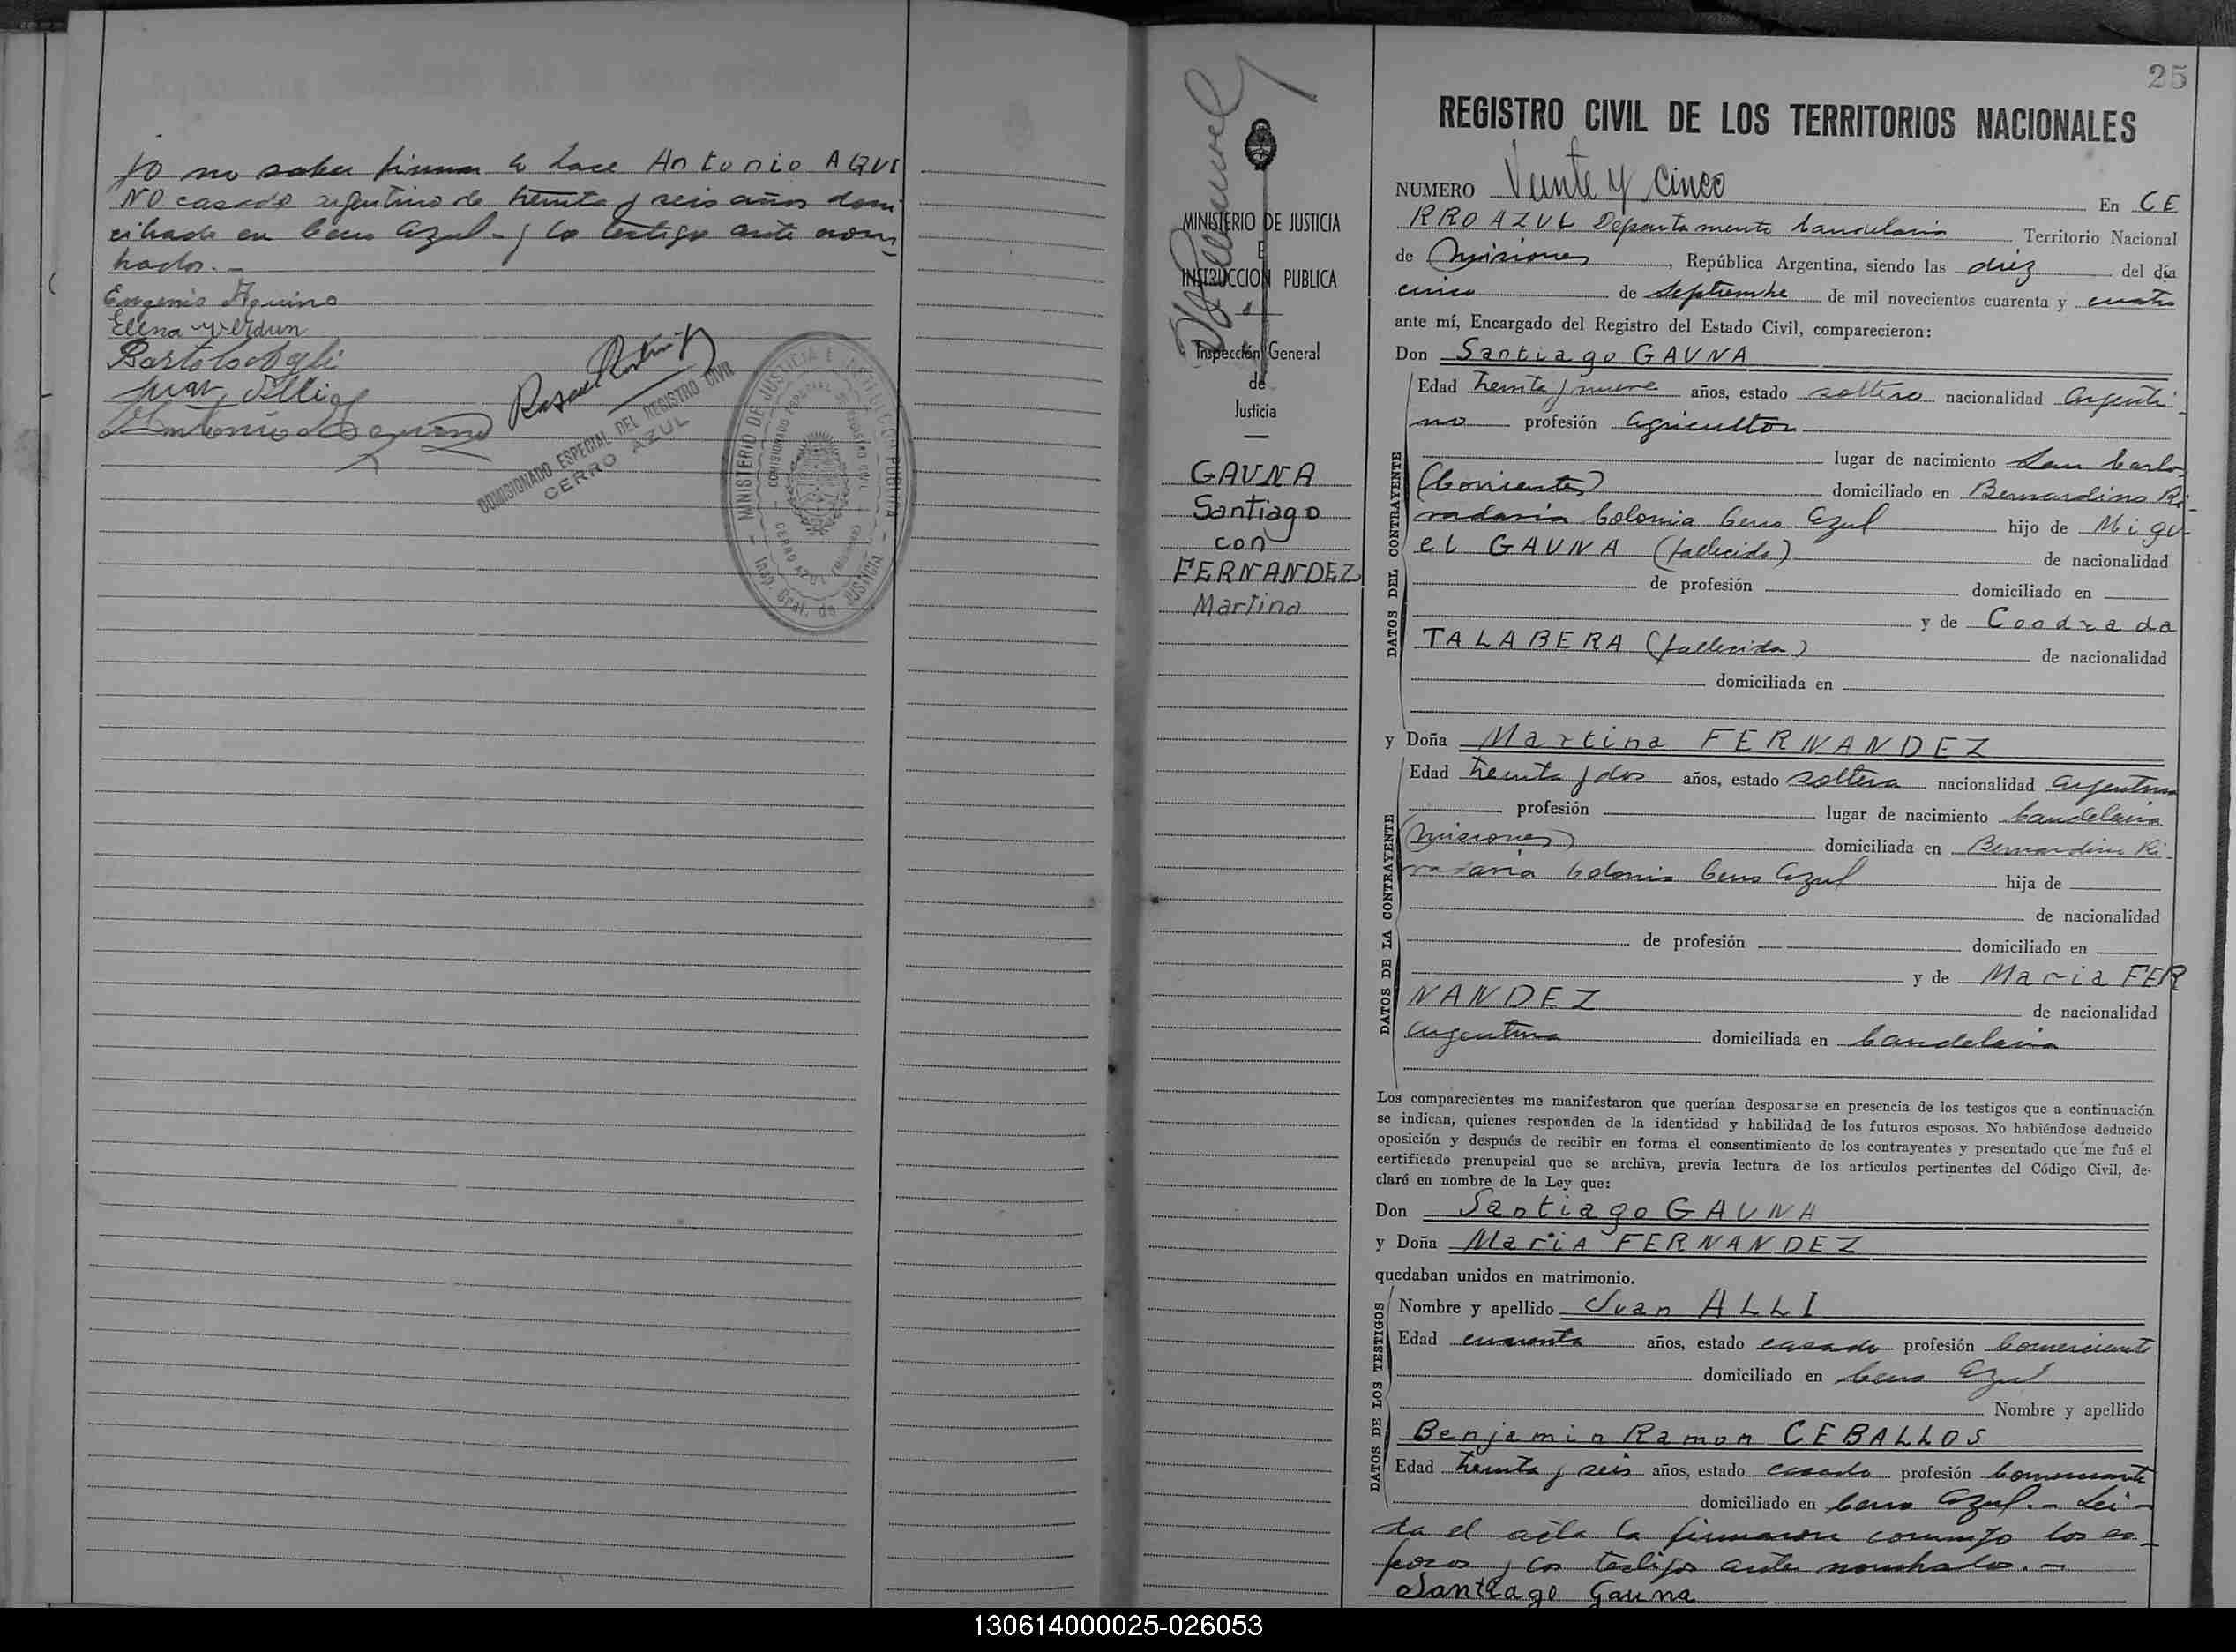 to no saber firmar lo hace Antonio AQUI
NO casado argentino de treinta y seis años domi
ciliado en Cerro Azul - y los testigos ante nom
brados.-
Eugenio Aquino
Elena Verdun
Juan Alli
COMISIONADO ESPECIAL DEL REGISTRO CIVIL
CERRO AZUL
MINISTERIO DE JUSTICIA E INSTRUCCION PUBLICA
Insp. Gral. de JUSTICIA
COMISIONADO ESPECIAL DE REGISTRO CIVIL
CERRO AZUL (MISIONES)
25
MINISTERIO DE JUSTICIA
E
INSTRUCCION PUBLICA
Inspección General
de
Justicia
GAUNA
Santiago
con
FERNANDEZ
Martina
REGISTRO CIVIL DE LOS TERRITORIOS NACIONALES
NUMERO Veinte y cinco En CE
RRO AZUL Departamento Candelaria Territorio Nacional
de Misiones, República Argentina, siendo las diez del día
cinco de Septiembre de mil novecientos cuarenta y cuatro
ante mí, Encargado del Registro del Estado Civil, comparecieron:
Don Santiago GAUNA
DATOS DEL CONTRAYENTE
Edad treinta y nueve años, estado soltero nacionalidad argenti-
no profesión agricultor
lugar de nacimiento San Carlos
(Corrientes) domiciliado en Bernardino Ri-
vadavia Colonia Cerro Azul hijo de Migu-
el GAUNA (fallecido) de nacionalidad
de profesión domiciliado en
y de Coodrada
TALABERA (fallecida) de nacionalidad
domiciliada en
y Doña Martina FERNANDEZ
DATOS DE LA CONTRAYENTE
Edad treinta y dos años, estado soltera nacionalidad argentina
profesión lugar de nacimiento Candelaria
(Misiones) domiciliada en Bernardino Ri-
vadavia Colonia Cerro Azul hija de
de nacionalidad
de profesión domiciliado en
y de Maria FER
NANDEZ de nacionalidad
argentina domiciliada en Candelaria
Los comparecientes me manifestaron que querían desposarse en presencia de los testigos que a continuación
se indican, quienes responden de la identidad y habilidad de los futuros esposos. No habiéndose deducido
oposición y después de recibir en forma el consentimiento de los contrayentes y presentado que me fué el
certificado prenupcial que se archiva, previa lectura de los artículos pertinentes del Código Civil, de-
claré en nombre de la Ley que:
Don Santiago GAUNA
y Doña MariA FERNANDEZ
quedaban unidos en matrimonio.
DATOS DE LOS TESTIGOS
Nombre y apellido Juan ALLI
Edad cuarenta años, estado casado profesión Comerciante
domiciliado en Cerro Azul
Nombre y apellido
Benjamin Ramon CEBALLOS
Edad treinta y seis años, estado casado profesión Comerciante
domiciliado en Cerro Azul.- Lei-
da el acta la firmaron conmigo los es-
posos y los testigos ante nombrados.-
Santiago Gauna
130614000025-026053